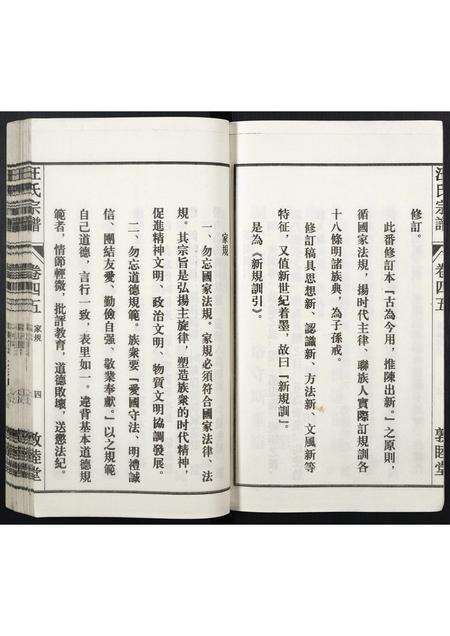 汪氏宗譜
卷四五
敦睦堂
修訂。
此番修訂本『古為今用，推陳出新。』之原則，
循國家法規，揚时代主律、聯族人實際訂規訓各
十八條明諸族典，為子孫戒。
修訂稿具思想新、認識新、方法新、文風新等
特征，又值新世纪着墨，故曰『新規訓』。
是為《新規訓引》。
家規
一、勿忘國家法規。家規必須符合國家法律、法
規。其宗旨是弘揚主旋律，塑造族衆的时代精神，
促進精神文明、政治文明、物質文明協調發展。
二、勿忘道德規範。族衆要『愛國守法、明禮誠
信、團結友愛、勤儉自强、敬業奉獻。』以之規範
自己道德，言行一致，表里如一。違背基本道德規
範者，情節輕微，批評教育，道德敗壞，送懲法紀。
汪氏宗譜
卷四五
家規
四
敦睦堂